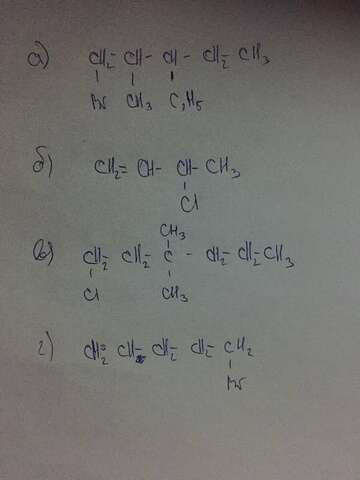 а) CH2- CH- CH- CH2- CH3
Br CH3 C2H5
б) CH2= CH- CH- CH3
Cl
CH3
в) CH2- CH2- C - CH2- CH2- CH3
Cl CH3
г) CH2= CH- CH2- CH2- CH2
Br